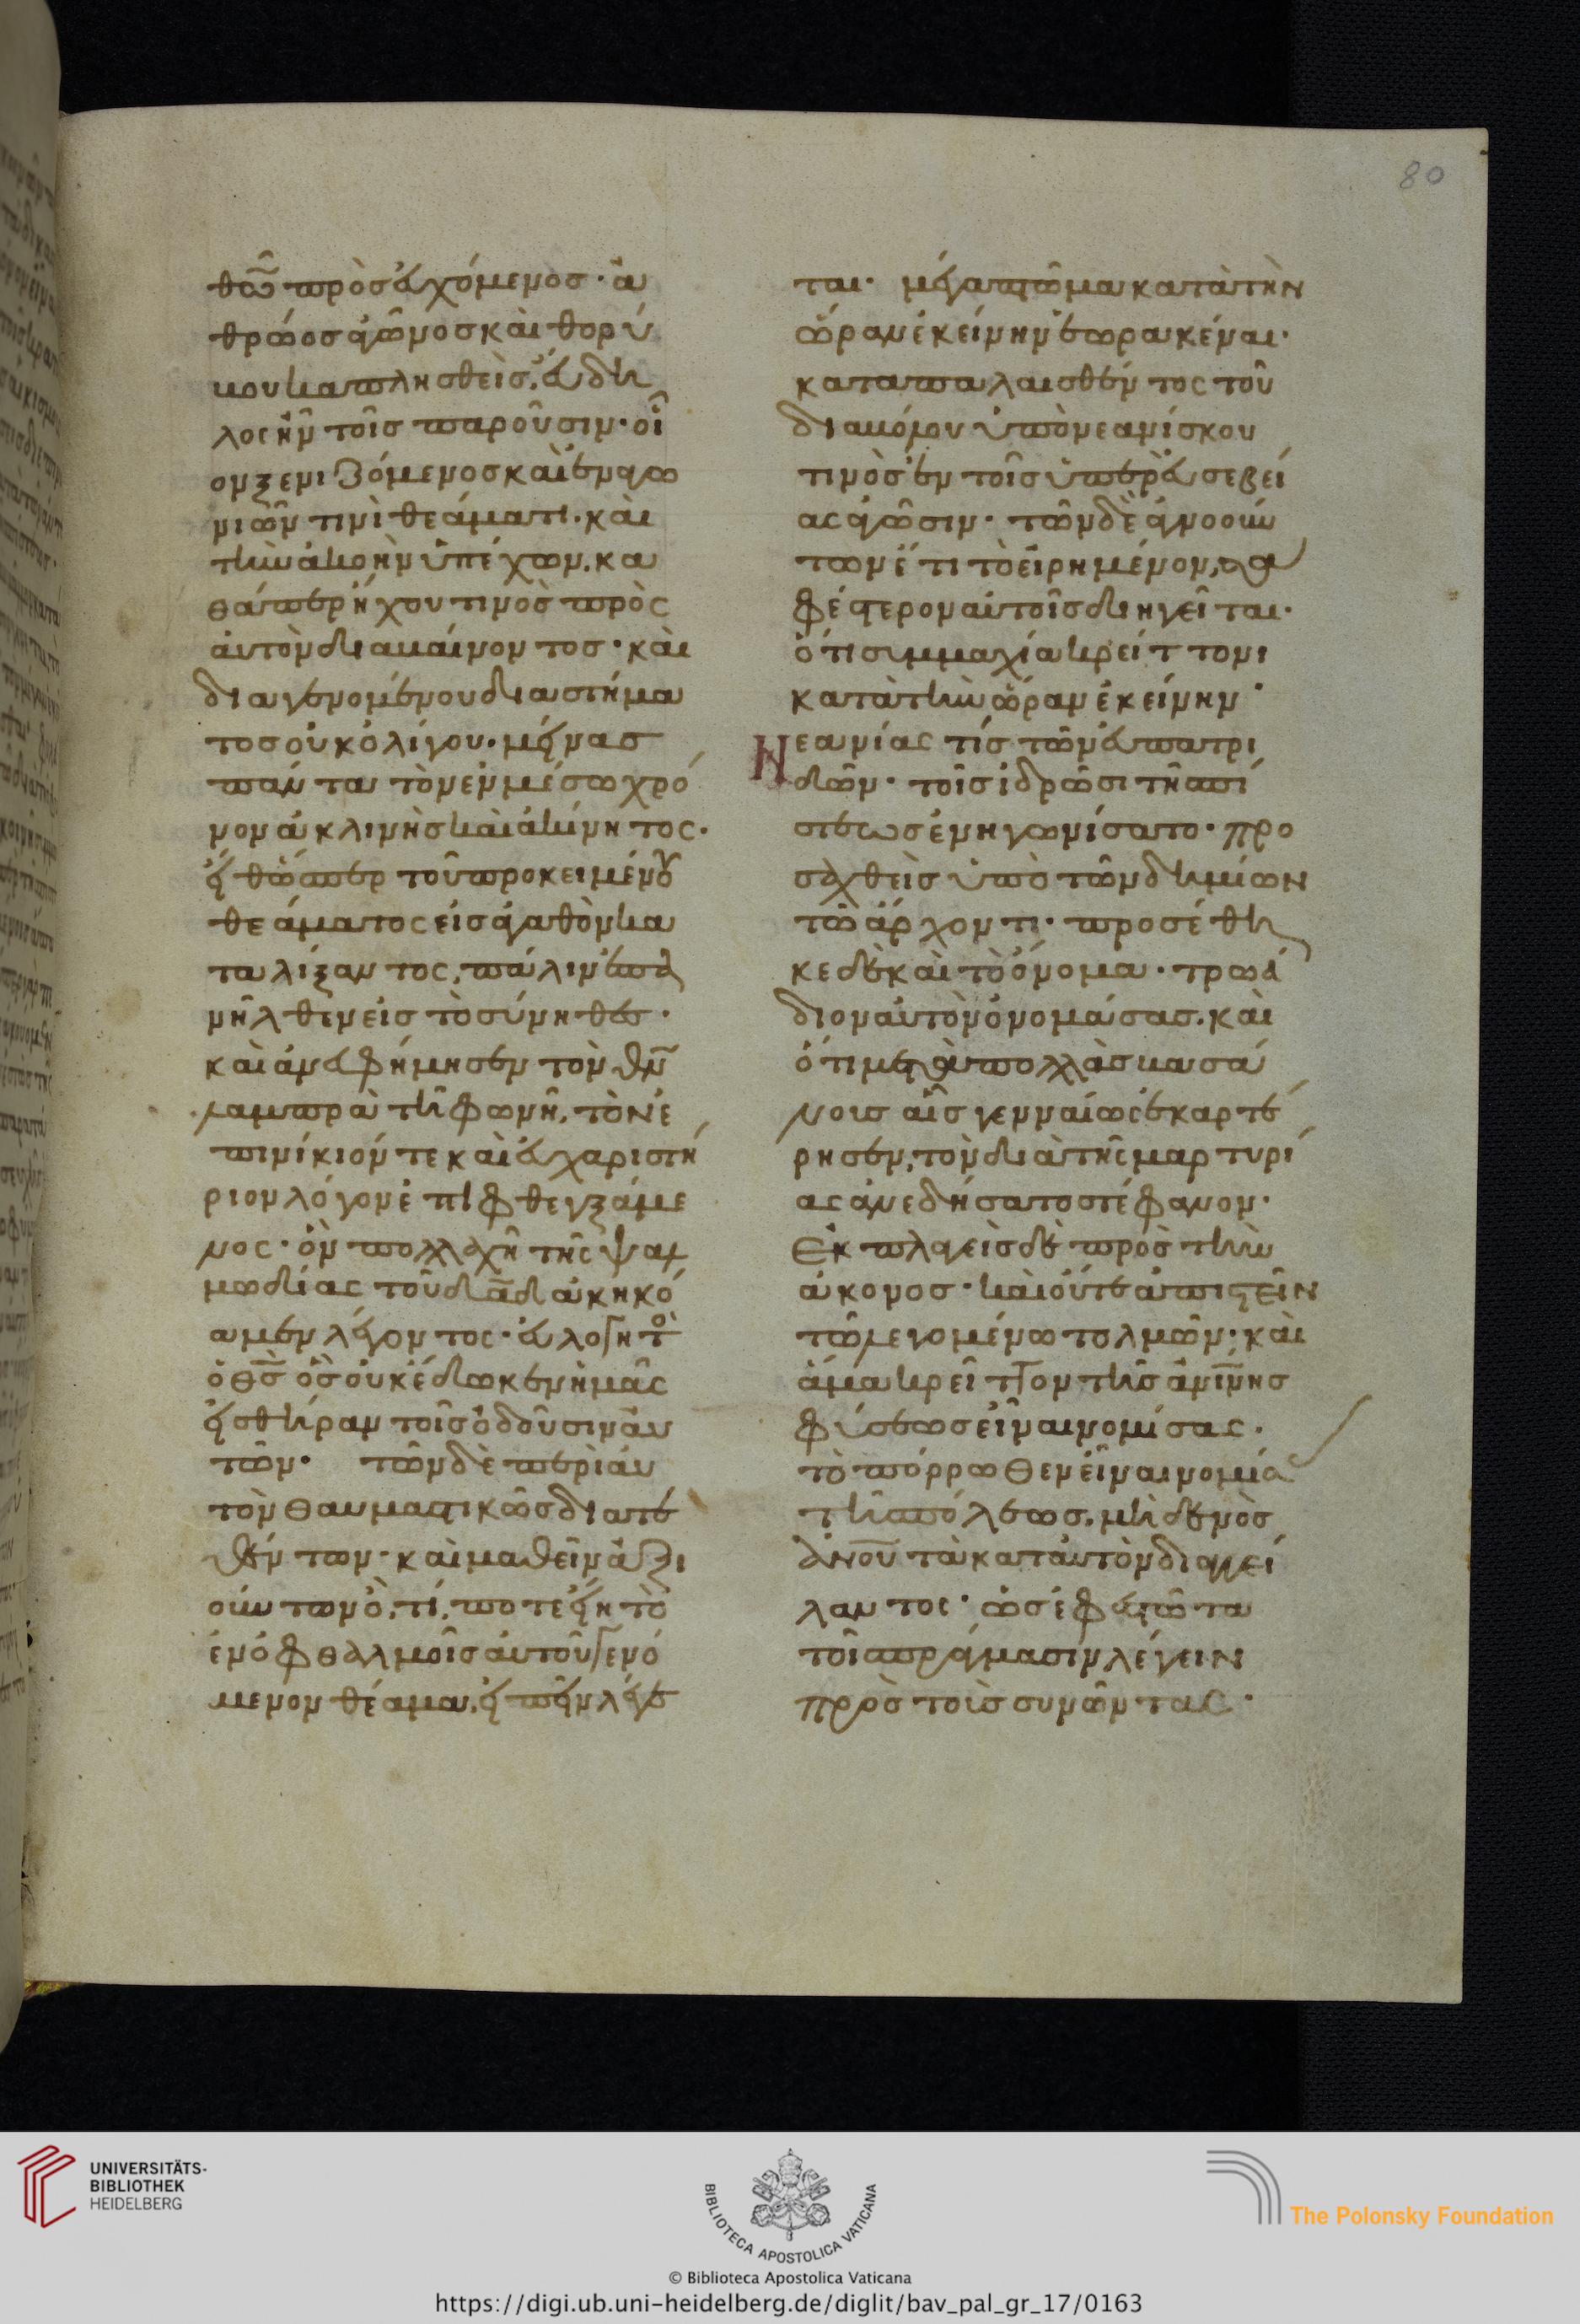 θῶ πρὸς εὐχόμενος· ἀ
θρόως ἀγῶνος καὶ θορύ
βου καταπλησθεὶς, εὔδη
λος ἦν τοῖς παροῦσιν· οἷ
ον ξενιζόμενος καὶ ἐναγω
νιῶν τινὶ θεάματι· καὶ
τὴν ἀκοὴν ὑπέχων, κα
θάπερ ἤχου τινὸς πρὸς
αὐτὸν διαβαίνοντος· καὶ
διαγενομένου διαστήμα
τος οὐκ ὀλίγου· μείνας
πάντα τὸν ἐν μέσω χρό
νον ἀκλινὴς καὶ ἀκίνητος·
εἶθ ὥσπερ τοῦ προκειμένου
θεάματος εἰς ἀγαθὸν κα
ταλίξαντος, πάλιν ἐπα
νῆλθεν εἰς τὸ σύνηθες·
καὶ ἀνευφήμησεν τὸν θν
λαμπρὰ τῆ φωνῆ, τὸν ἐ
πινίκιόν τε καὶ εὐχαριστή
ριον λόγον ἐπιφθεγξάμε
νος· ὃν πολλαχῆ τῆς ψαλ
μωδίας τοῦ δαδ ἀκηκό
αμεν λέγοντος· εὐλογητὸ
ὁ θς ὃς οὐκ ἔδωκεν ἡμᾶς
εἰς θήραν τοῖς ὀδοῦσιν αὐ
τῶν· τῶν δὲ περὶ αὐ
τὸν θαυμαστικῶς διατε
θέντων· καὶ μαθεῖν ἀξι
ούντων ὅ,τί, ποτε εἴη τὸ
ἐν ὀφθαλμοῖς αὐτοῦ γενό
μενον θέαμα, εἰπεῖν λέγε
ται· μέγα πτῶμα κατὰ τὴν
ὥραν ἐκείνην ἑωρακέναι·
καταπαλαισθέντος τοῦ
διαβόλου ὑπὸ νεανίσκου
τινὸς ἐν τοῖς ὑπὲρ εὐσεβεί
ας ἀγῶσιν· τῶν δὲ ἀγνοούν
των ἔτι τὸ εἰρημένον, σα
φέστερον αὐτοῖς διηγεῖται·
ὅτι συμμαχία κρείττονι
κατὰ τὴν ὥραν ἐκείνην
Νεανίας τίς τῶν εὐπατρι
δῶν· τοῖς ἱδρῶσι τῆς πί
στεως ἐνηγωνίσατο· προ
σαχθεὶς ὑπὸ τῶν δημίων
τῶ ἄρχοντι· προσέθη
κε δὲ καὶ τὸ ὄνομα· τρωά
διον αὐτὸν ὀνομάσας· καὶ
ὅτι μετὰ πολλὰς βασά
νους αἷς γενναίως ἐκαρτέ
ρησεν, τὸν διὰ τῆς μαρτυρί
ας ἀνεδήσατο στέφανον·
Ἐκπλαγεὶς δὲ πρὸς τὴν
ἀκονος· καὶ οὔτε ἀπιστεῖν
τῶ λεγομένω τολμῶν· καὶ
ἅμα κρεῖττον τῆς ἀνίνης
φύσεως εἶναι νομίσας·
τὸ πόρρωθεν εἶναι νομί
τῆς πόλεως, μηδενὸς
ἀνου τὰ κατ αὐτὸν διαγγεί
λαντος· ὡς ἐφεστῶτα
τοῖς πράγμασιν λέγειν
πρὸς τοὺς συνῶντας·
80
UNIVERSITÄTS-
BIBLIOTHEK
HEIDELBERG
BIBLIOTECA APOSTOLICA VATICANA
The Polonsky Foundation
© Biblioteca Apostolica Vaticana
https://digi.ub.uni-heidelberg.de/diglit/bav_pal_gr_17/0163